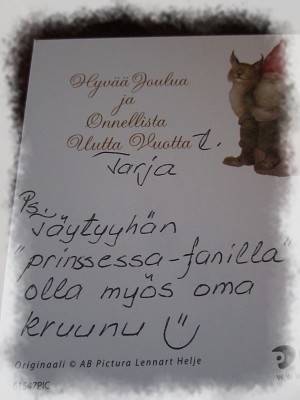 Hyvää Joulua
ja
Onnellista
Uutta Vuotta t.
Tarja
Ps.
Täytyyhän
"prinssessa-fanilla"
olla myös oma
kruunu
Originaali © AB Pictura Lennart Helje
61547PIC